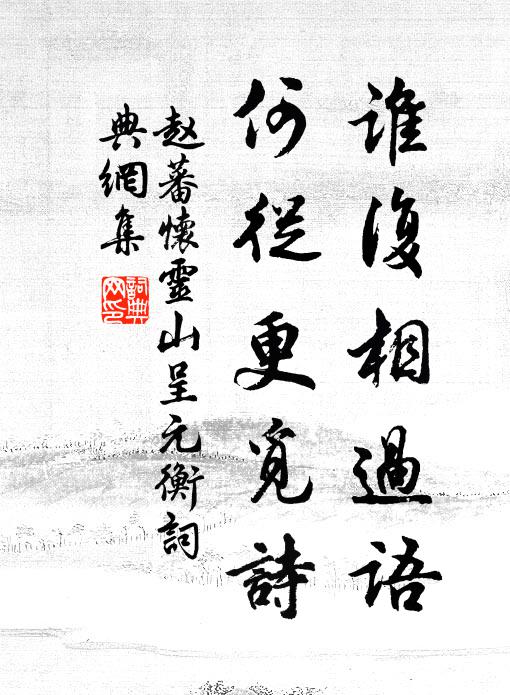 誰復相過語
何從更覓詩
赵蕃懷靈山呈元衡詞
典網集
詞典网印